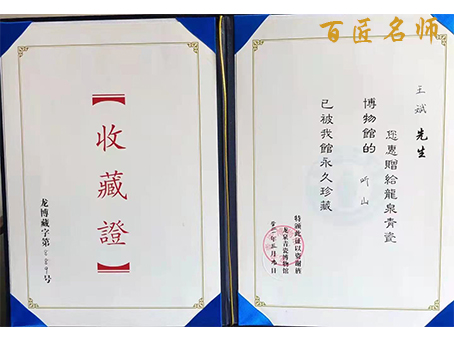 百匠名师
【收藏證】
龙博藏字第 号
王斌 先生
您惠贈給龍泉青瓷
博物館的 听山
已被我館永久珍藏
特頒此証以资谢旃
龙泉青瓷博物館
年 月 日